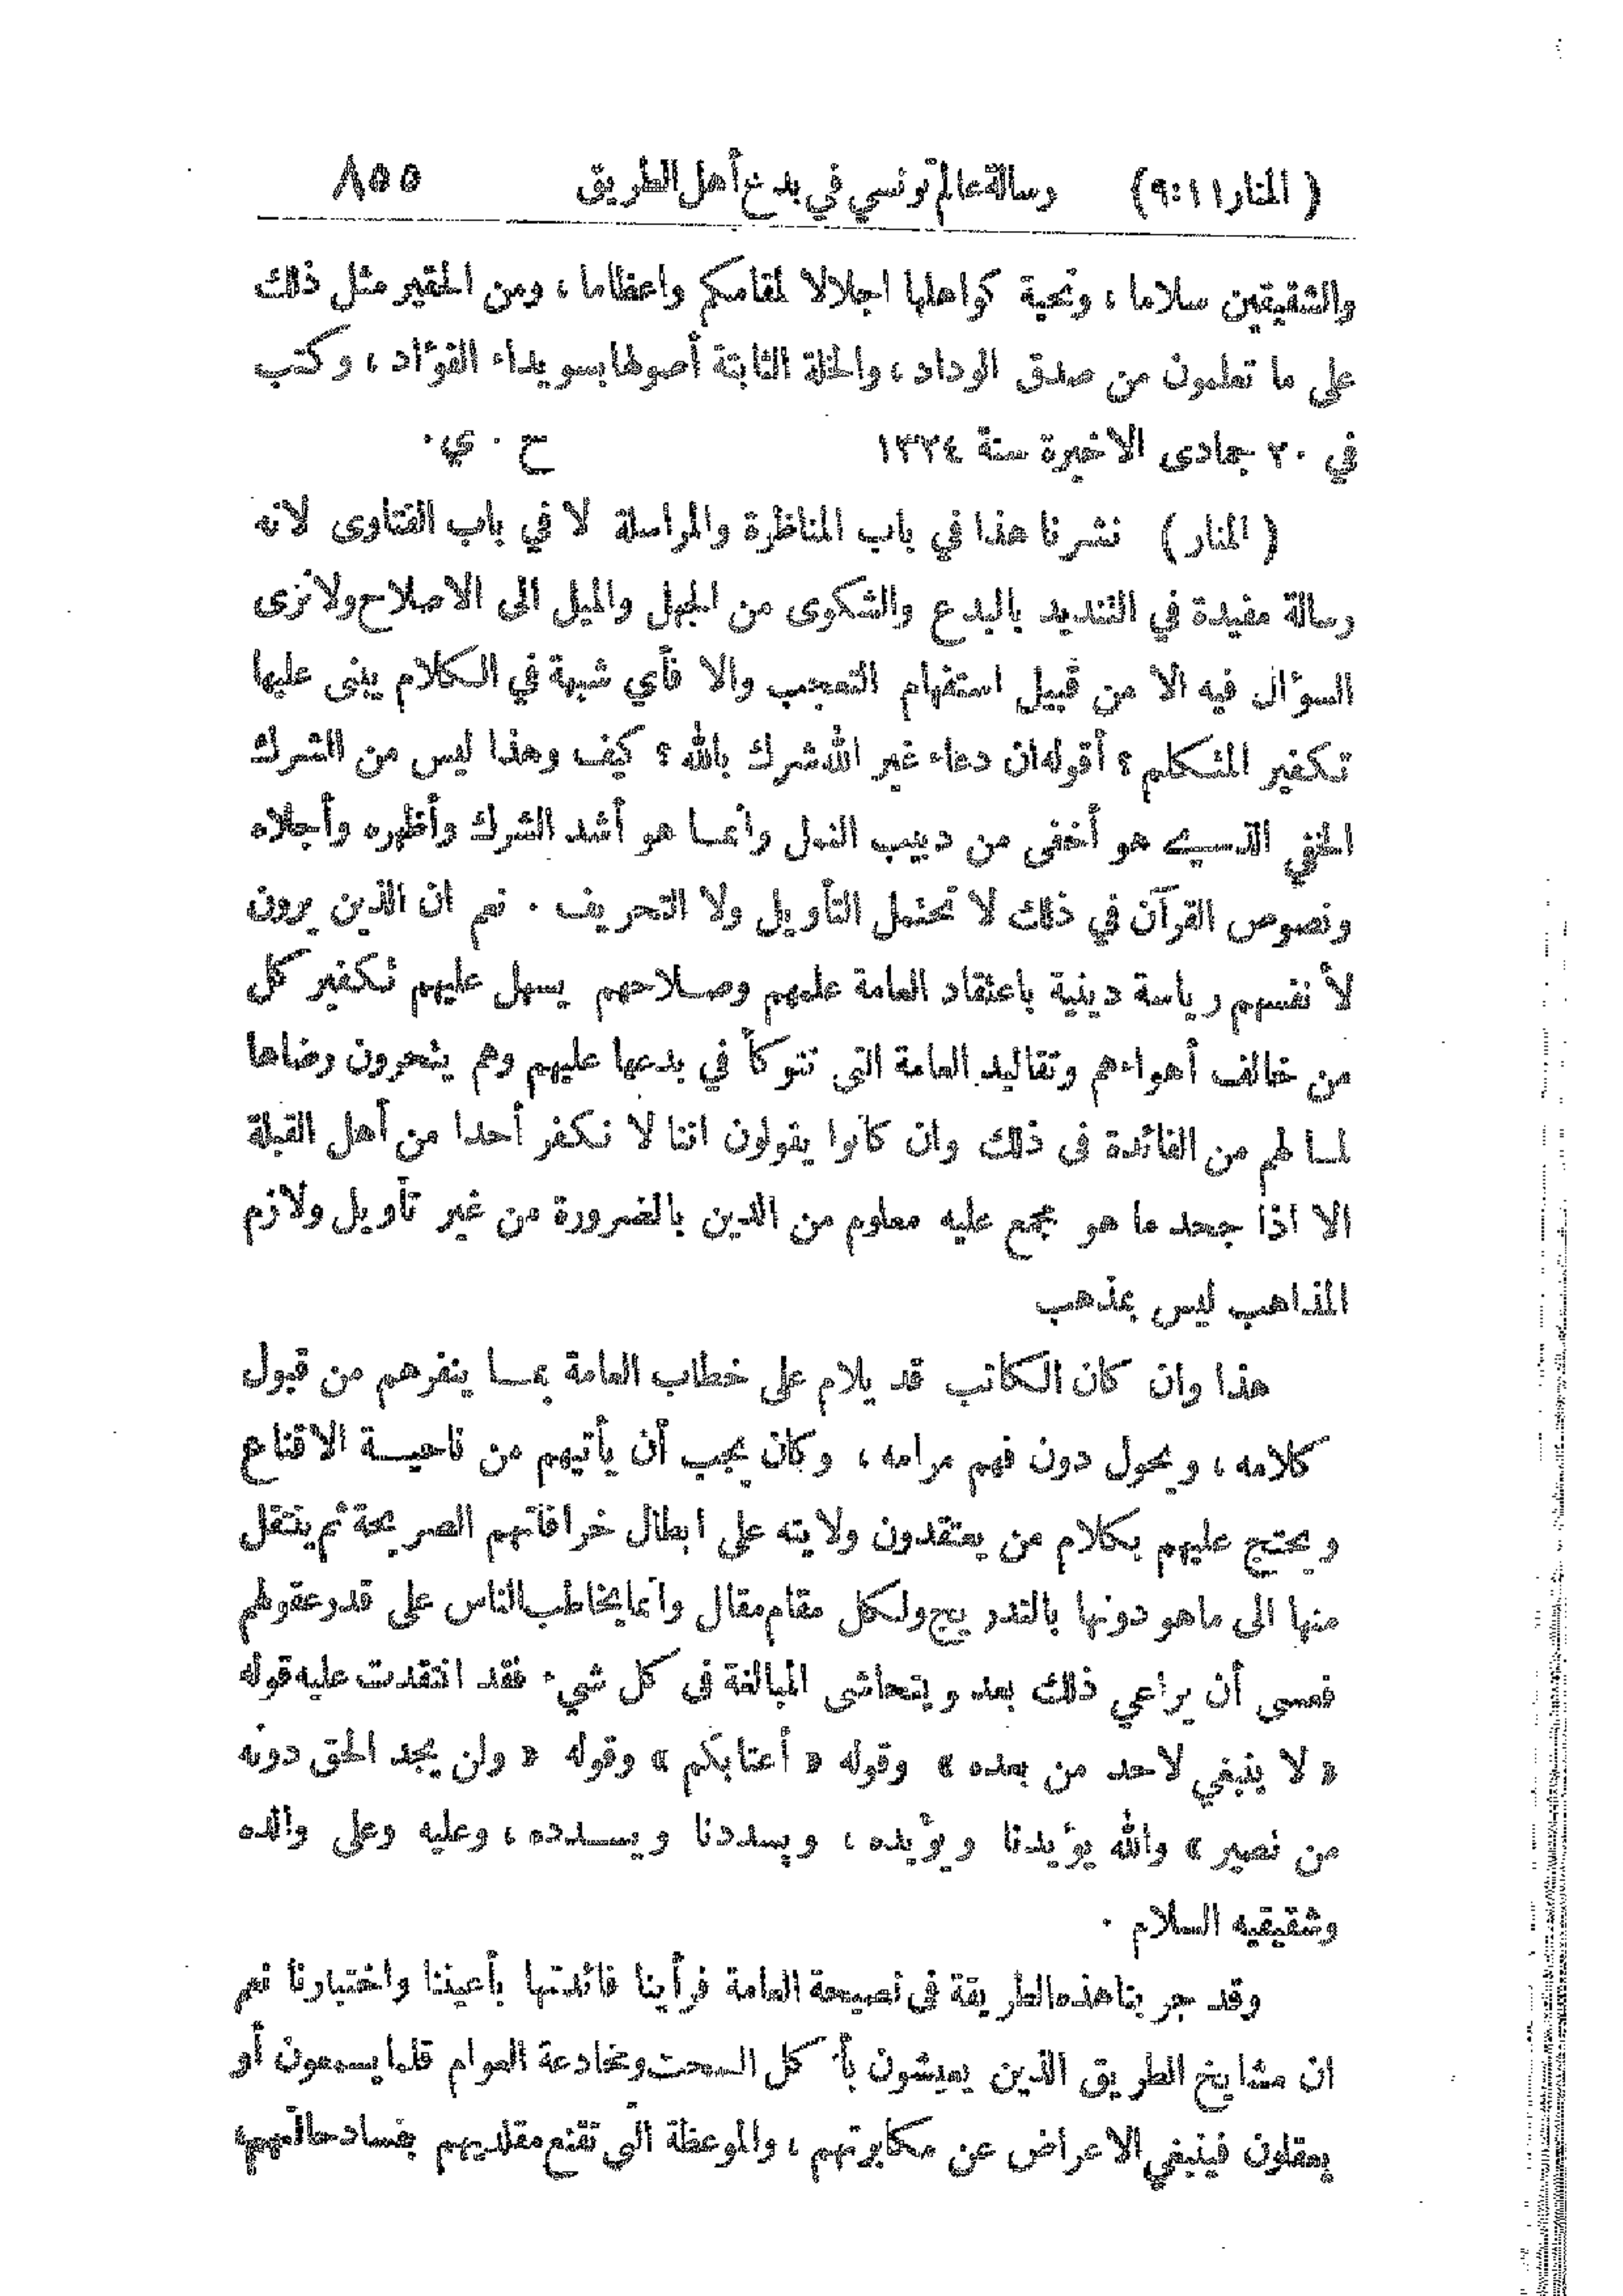 ( المنار ١١ : ٩) رسالة عالم تونسي في بدع أهل الطريق ٨٥٥
والشقيقين سلاما ، وتحية كواهلها اجلالا لمقامكم واعظاما ، ومن الحقير مثل ذلك
على ما تعلمون من صدق الوداد ، والخلة الثابتة أصولها بسويداء الفؤاد ، وكتب
في ٢٠ جمادى الاخيرة سنة ١٣٢٤ ح ٠ ي ٠
( المنار ) نشرنا هذا في باب المناظرة والمراسلة لا في باب الفتاوى لانه
رسالة مفيدة في التنديد بالبدع والشكوى من الجهل والميل الى الاصلاح ولا نرى
السؤال فيه الا من قبيل استفهام التعجب والا فأي شبهة في الكلام يبنى عليها
تكفير المتكلم ؟ أقوله ان دعاء غير الله شرك بالله ؟ كيف وهذا ليس من الشرك
الخفي الذي هو أخفى من دبيب النمل وانما هو أشد الشرك وأظهره وأجلاه
ونصوص القرآن في ذلك لا تحتمل التأويل ولا التحريف . نعم ان الذين يرون
لأنفسهم رياسة دينية باعتقاد العامة علمهم وصلاحهم يسهل عليهم تكفير كل
من خالف أهواءهم وتقاليد العامة التي تتوكأ في بدعها عليهم وهم يتحرون رضاها
لما لهم من الفائدة فى ذلك وان كانوا يقولون اننا لا نكفر أحدا من أهل القبلة
الا اذا جحد ما هو مجمع عليه معلوم من الدين بالضرورة من غير تأويل ولازم
المذاهب ليس بمذهب
هذا وان كان الكاتب قد يلام على خطاب العامة بما ينفرهم من قبول
كلامه ، ويحول دون فهم مرامه ، وكان يجب أن يأتيهم من ناحية الاقناع
ويحتج عليهم بكلام من يعتقدون ولايته على ابطال خرافاتهم الصريحة ثم ينتقل
منها الى ماهو دونها بالتدريج ولكل مقام مقال وانما يخاطب الناس على قدر عقولهم
فعسى أن يراعي ذلك بعد ويتحاشى المبالغة فى كل شيء فقد انتقدت عليه قوله
« لا ينبغي لاحد من بعده » وقوله « أعتابكم » وقوله « ولن يجد الحق دونه
من نصير » والله يؤيدنا ويؤيده ، ويسددنا ويسدده ، وعليه وعلى والده
وشقيقيه السلام .
وقد جربنا هذه الطريقة فى نصيحة العامة فرأينا فائدتها بأعيننا واختبارنا نعم
ان مشايخ الطريق الذين يعيشون بأكل السحت ومخادعة العوام قلما يسمعون أو
يعقلون فينبغي الاعراض عن مكابرتهم ، والموعظة التى تقنع مقلديهم بفساد حالتهم،